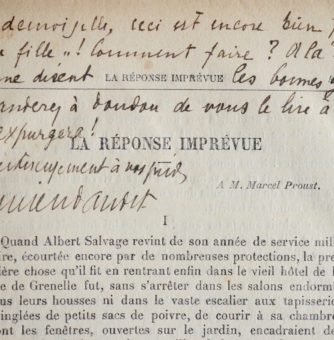 demoiselle, ceci est encore bien
fille"! Comment faire? A la
me disent LA RÉPONSE IMPRÉVUE les bonnes
à Doudou de vous le lire à
expurgera!
LA RÉPONSE IMPRÉVUE
à vos pieds
Lucien Daudet
A M. Marcel Proust.
I
Quand Albert Salvage revint de son année de service mili
ire, écourtée encore par de nombreuses protections, la pre
ière chose qu'il fit en rentrant enfin dans le vieil hôtel de l
e de Grenelle fut, sans s'arrêter dans les salons endorm
us leurs housses ni dans le vaste escalier aux tapisserie
inglées de petits sacs de poivre, de courir à sa chambre
ont les fenêtres, ouvertes sur le jardin, encadraient de